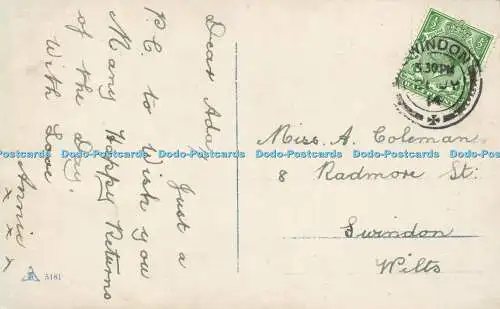 Dear Ada,
Just a
P.C. to wish you
Many Happy Returns
of the Day.
With Love
Annie
x x x
Miss. A. Coleman
8 Radmore St:
Swindon
Wilts
SWINDON
5.30PM
14
5181
Dodo-Postcards Dodo-Postcards Dodo-Postcards Dodo-Postcards Dodo-Postcards Dodo-Postcards